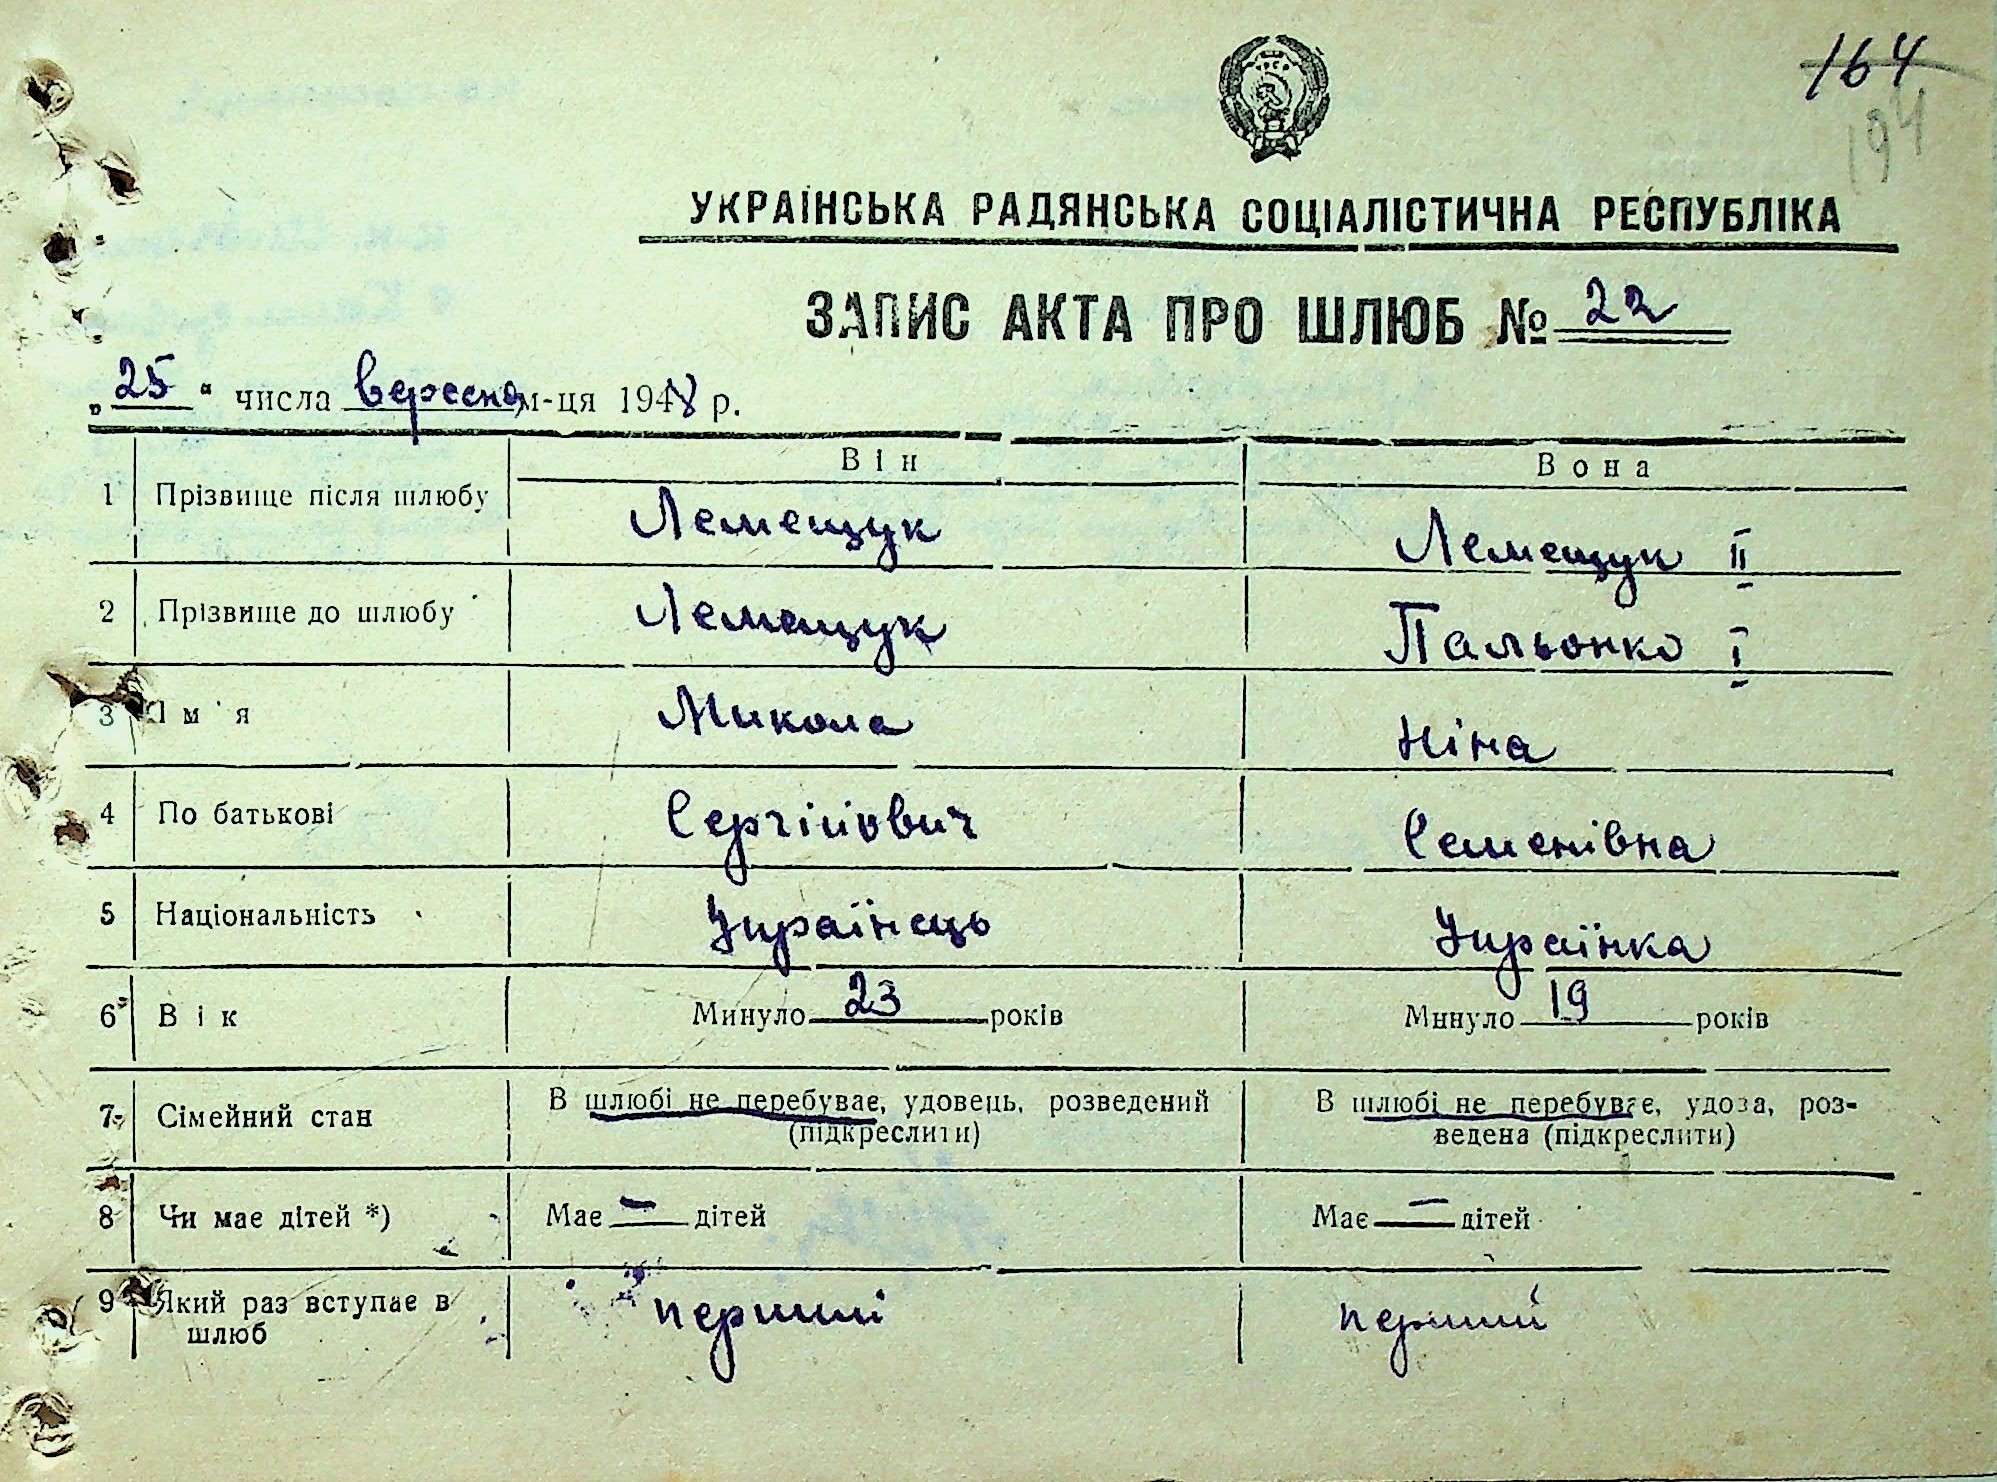 164
194
УКРАЇНСЬКА РАДЯНСЬКА СОЦІАЛІСТИЧНА РЕСПУБЛІКА
ЗАПИС АКТА ПРО ШЛЮБ № 22
„25“ числа вересня м-ця 1948 р.
Він Вона
1 Прізвище після шлюбу Лемещук Лемещук II
2 Прізвище до шлюбу Лемещук Пальонко I
3 Ім'я Микола Ніна
4 По батькові Сергійович Семенівна
5 Національність Українець Українка
6 Вік Минуло 23 років Минуло 19 років
7 Сімейний стан В шлюбі не перебуває, удовець, розведений (підкреслити) В шлюбі не перебуває, удова, роз-
ведена (підкреслити)
8 Чи має дітей *) Має — дітей Має — дітей
9 Який раз вступає в шлюб перший перший